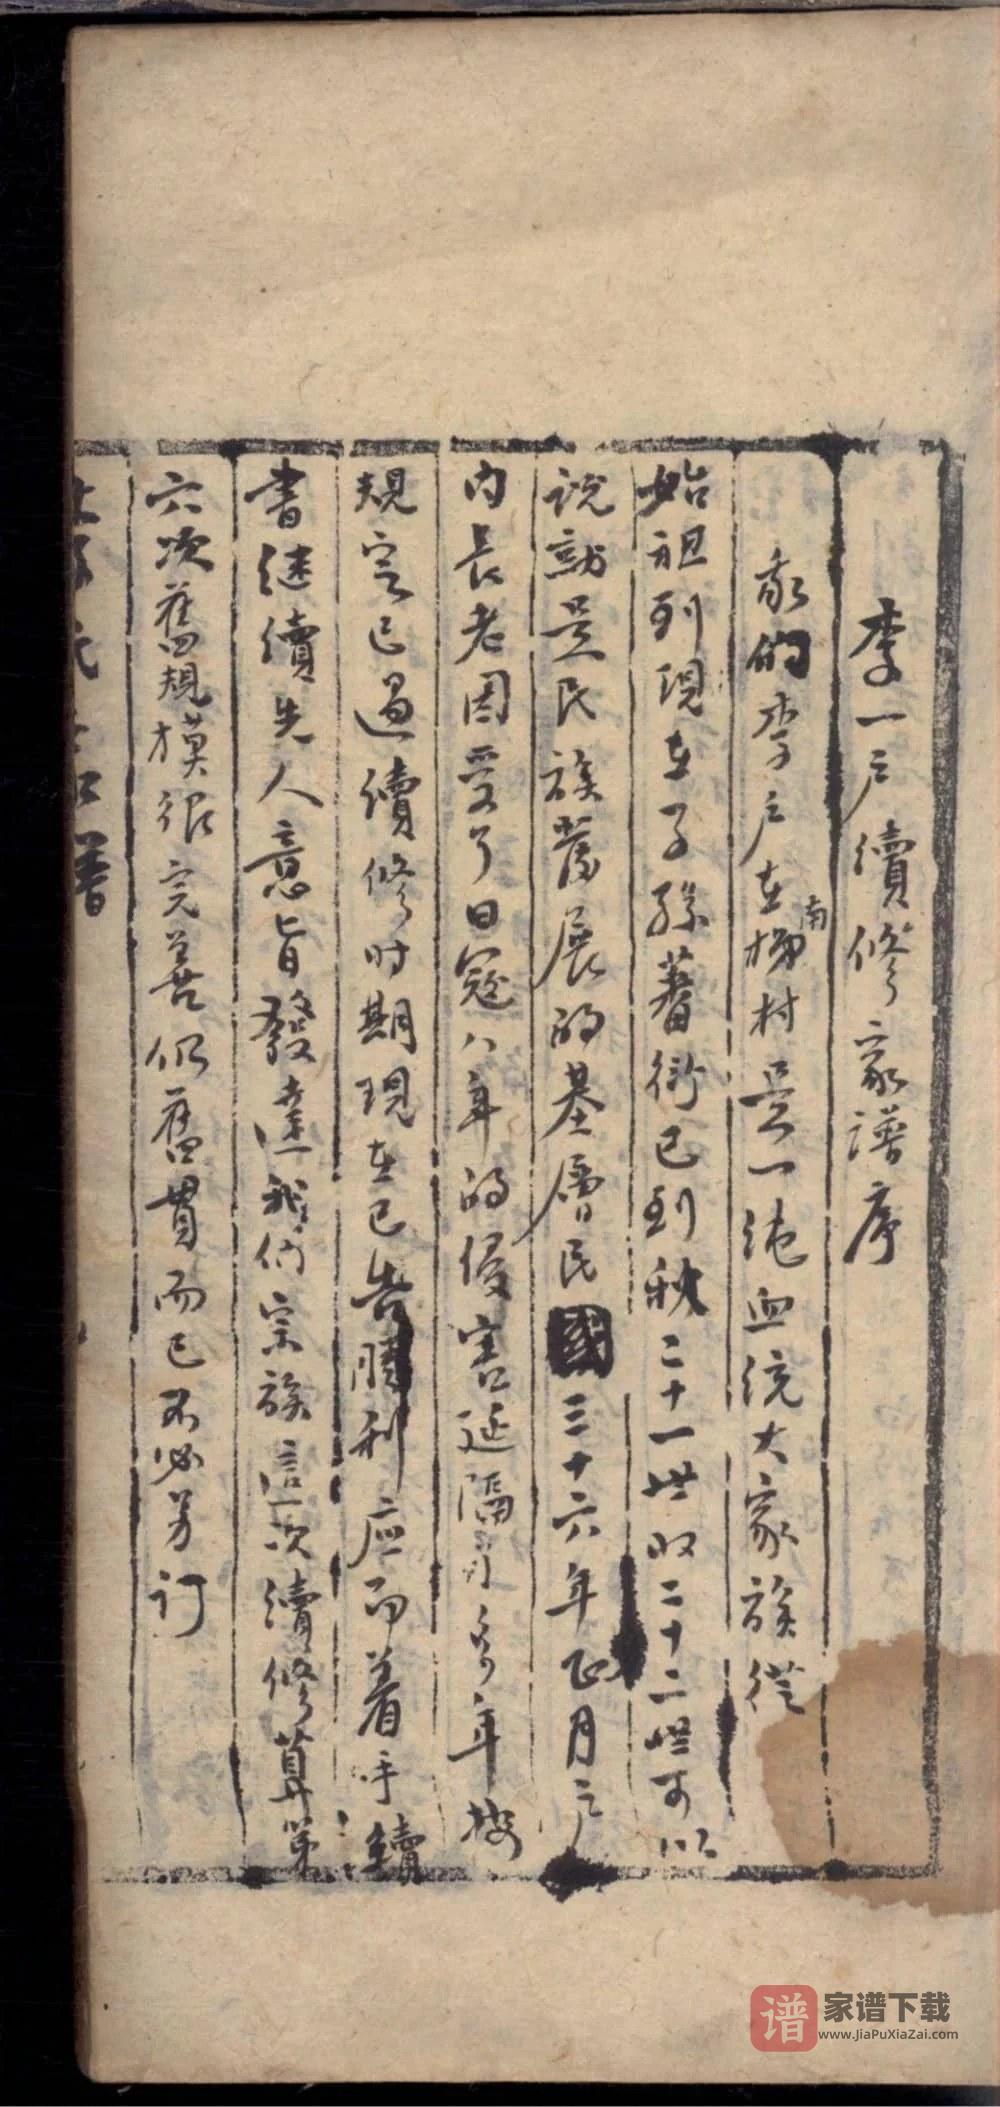 李一户續修家譜序
我的李户在南梯村是一純血统大家族從
始祖到現在子孫蕃衍已到秋二十一世收二十二世可以
说就是民族發展的基層民國三十六年正月户
内長老因受了日寇八年的侵害延隔多年按
規定已過續修时期現在已告勝利应而着手續
書继續先人意旨發達我们宗族這次續修算第
六次舊規模很完善仍舊貫而已不必另订
譜
家谱下载
www.JiaPuXiaZai.com